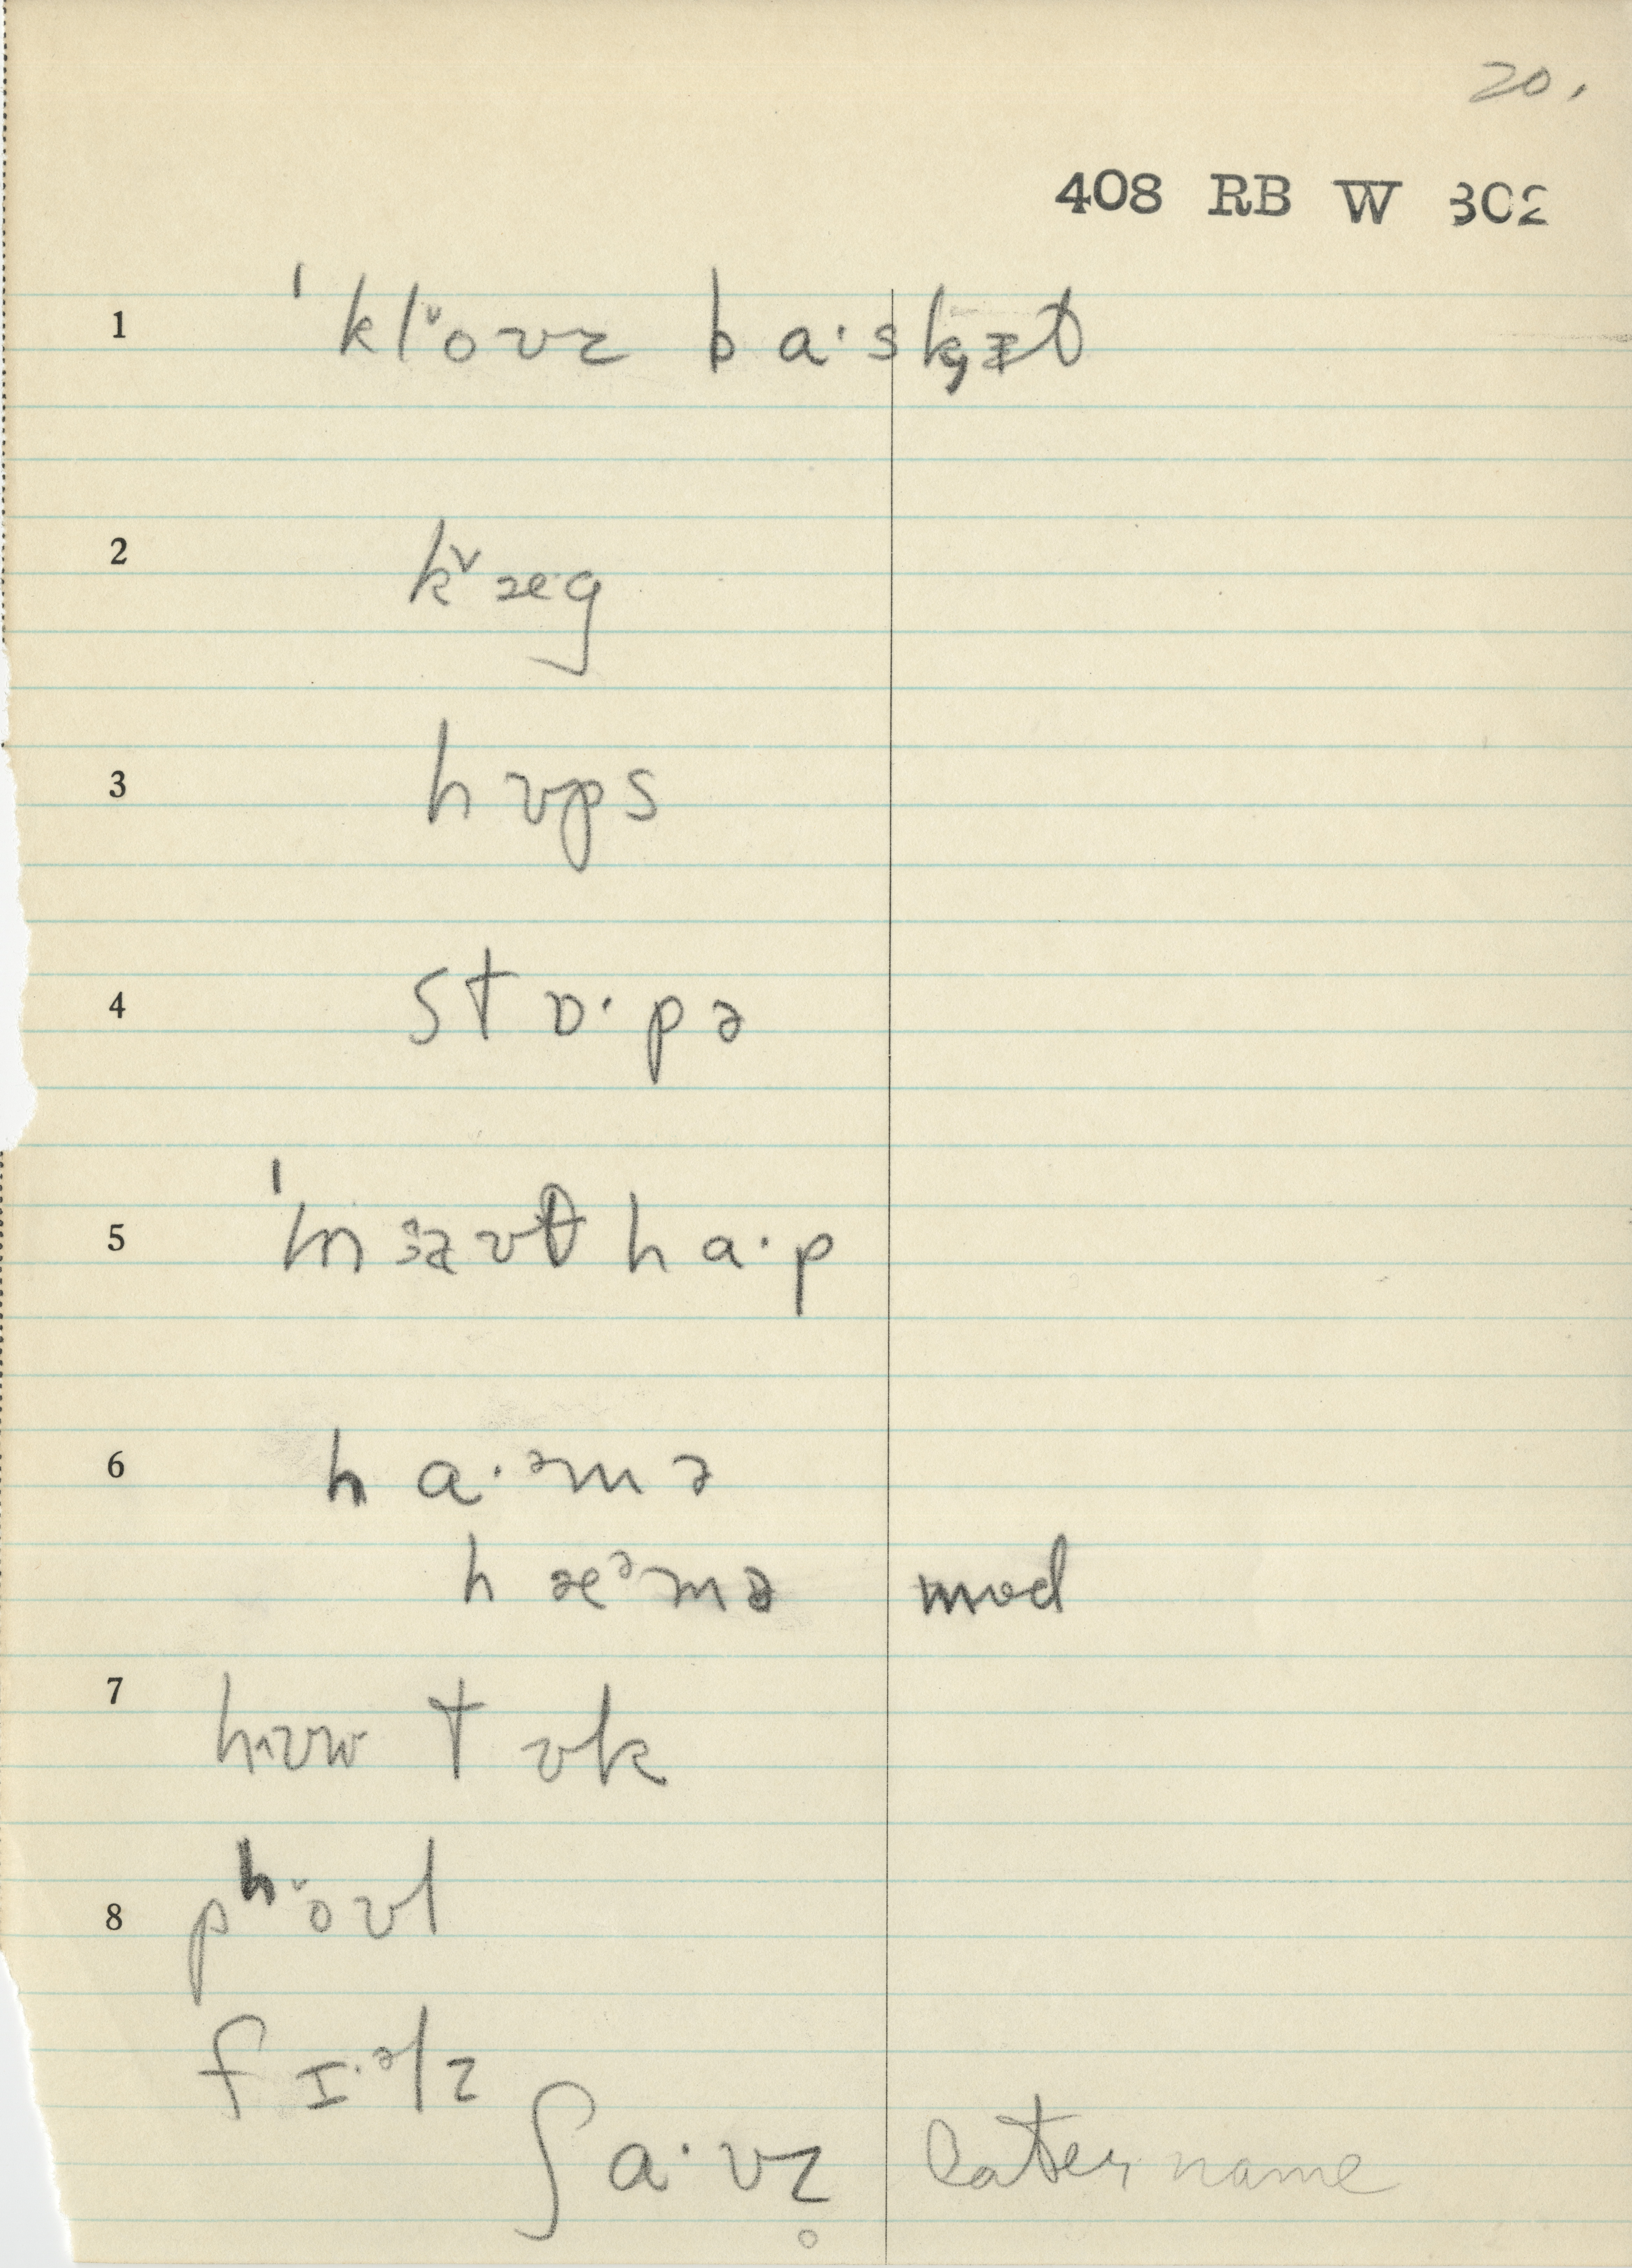 20.
408 RB W 302
1 ˈkl˅oʊz ba·sk̟ɪt
2 k˅æ·g
3 hʊps
4 stɒ·pə
5 ˈmɜəʊt ha·p
6 ha·ᵊmə
hæᵊmə mod
7 hʌʊw tʊk
8 pʰ·o˅ʊl
fɪ·ᵊlz
ʃa·vz̥ later name